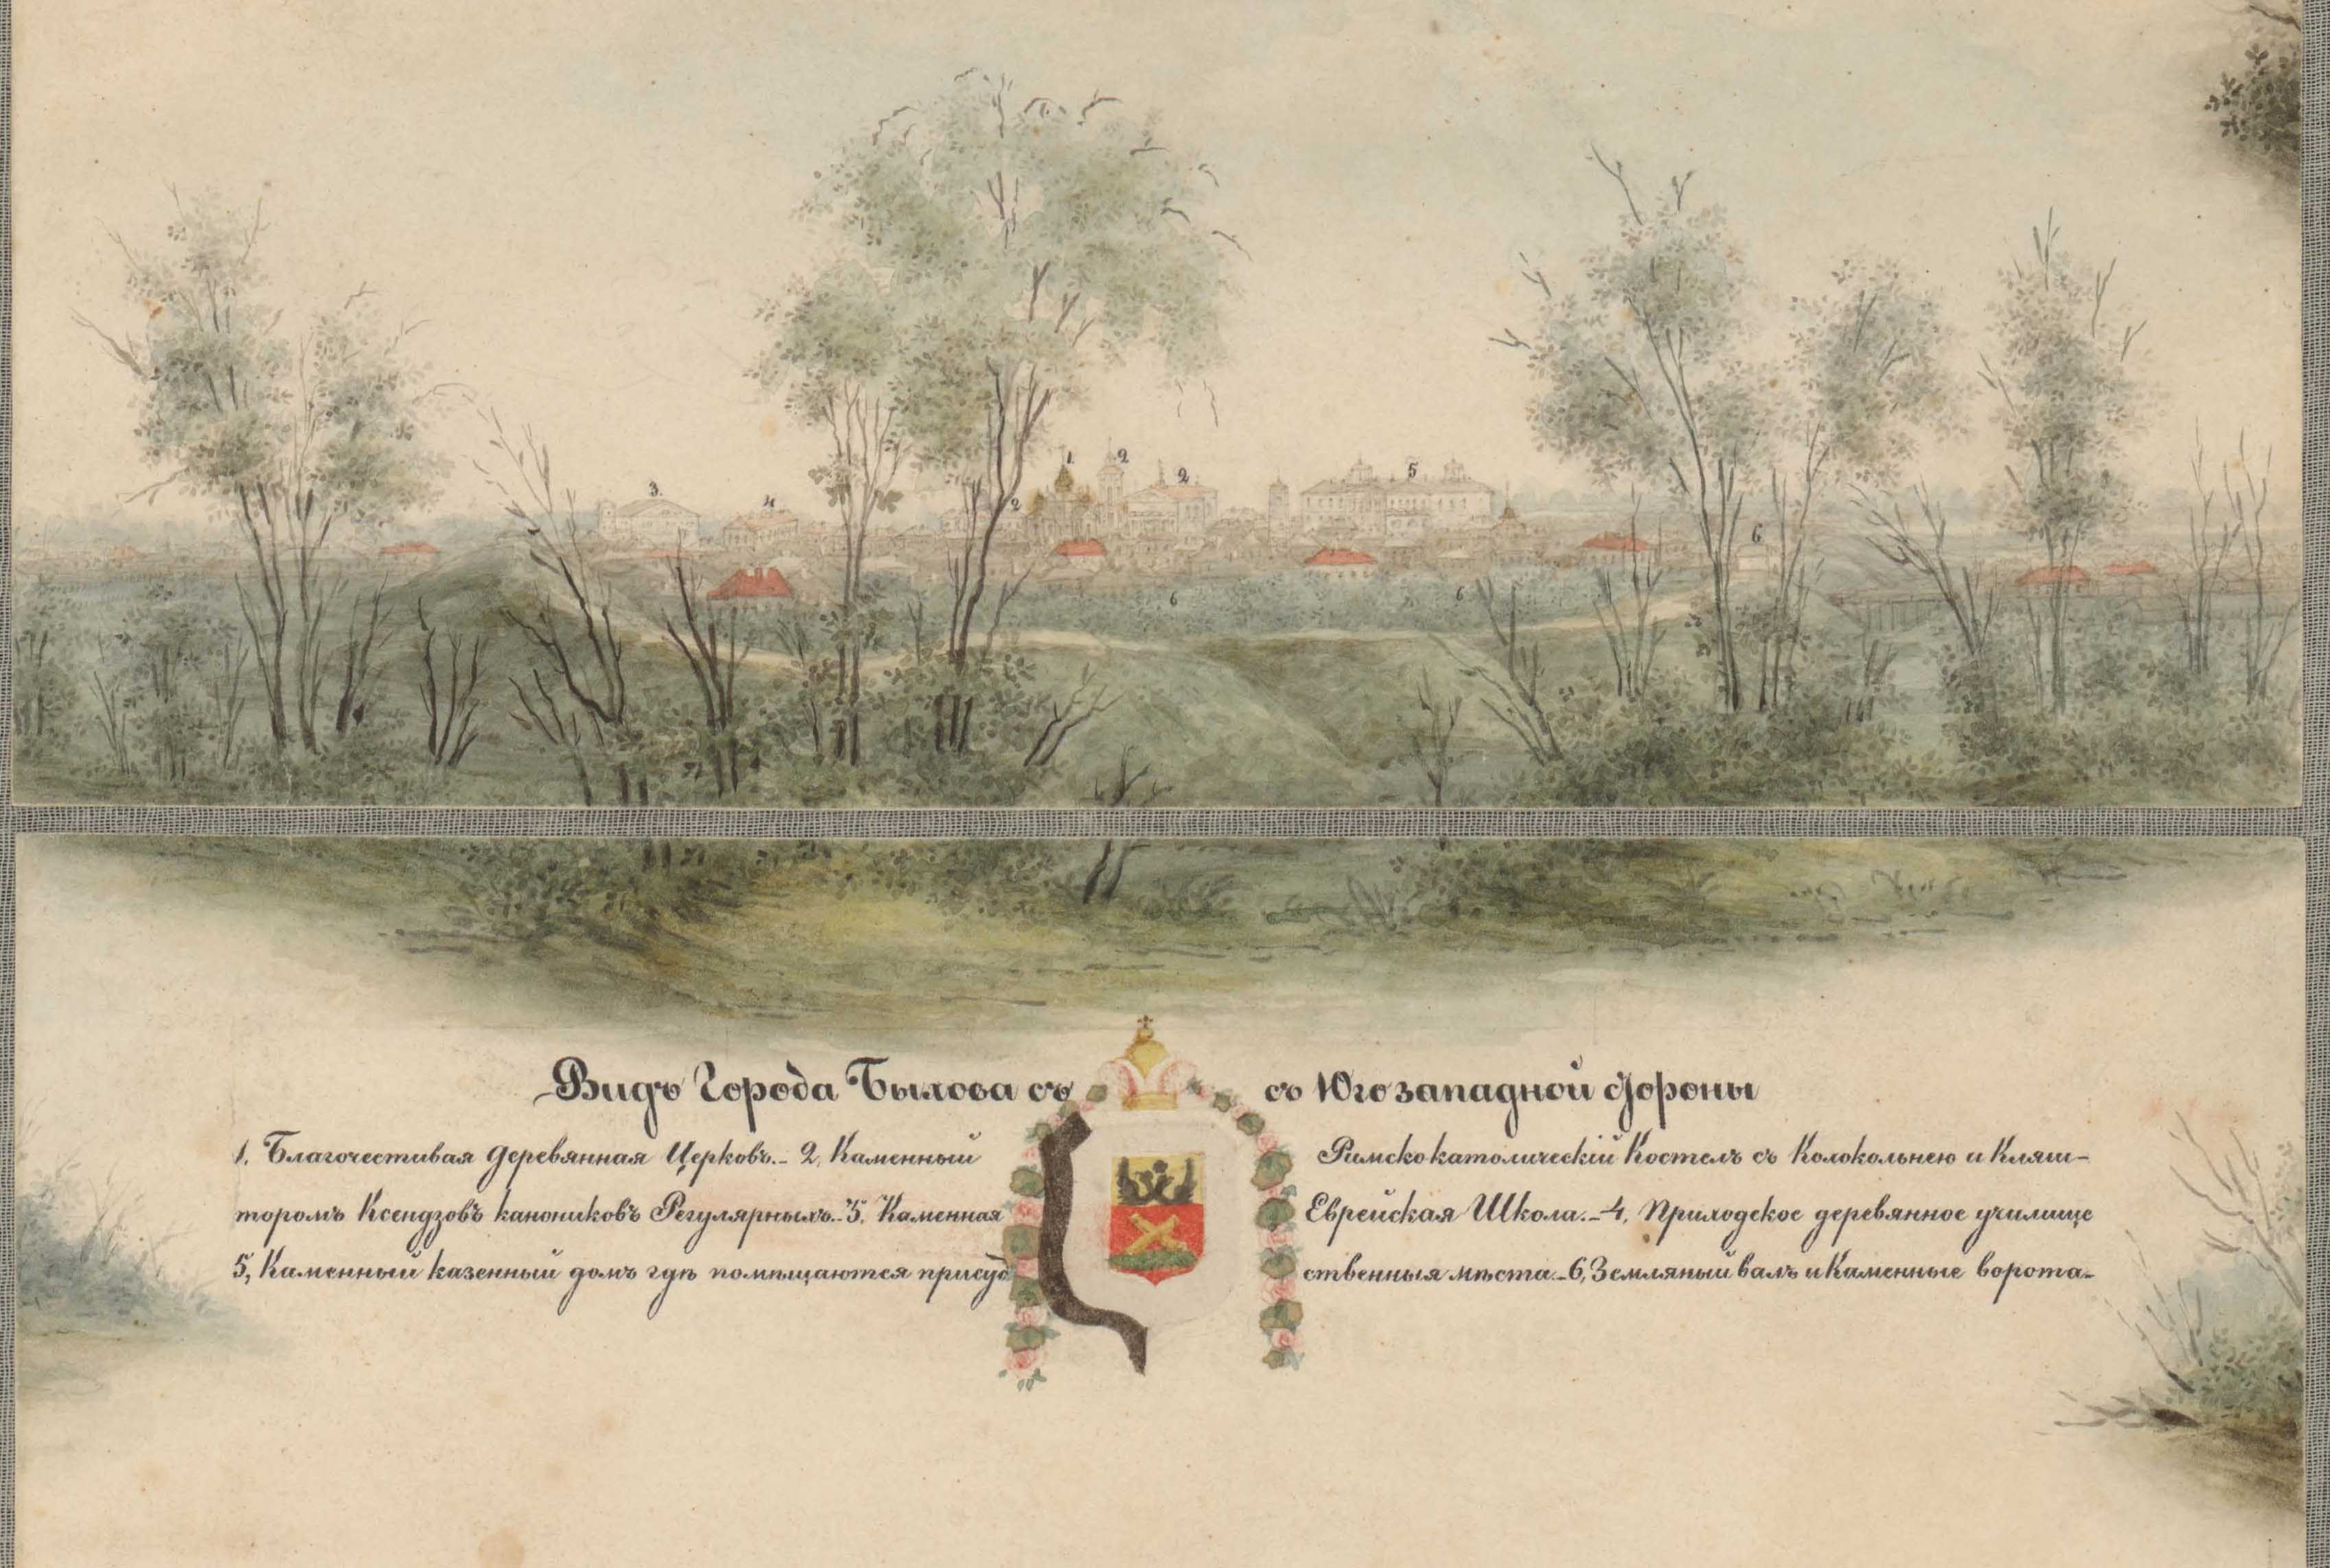 3.
4
2
1.
2
2
5
6
6
6
Видъ Города Быхова съ съ Югозападной стороны
1, Благочестивая деревянная Церковъ.- 2, Каменный Римскокатолическій Костелъ съ Колокольнею и Кляш-
торомъ Ксендзовъ канониковъ Регулярныхъ.- 3, Каменная Еврейская Школа.- 4, Приходское деревянное училище
5, Каменный казенный домъ гдѣ помѣщаются присуд ственныя мѣста.- 6, Земляный валъ и Каменные ворота.-